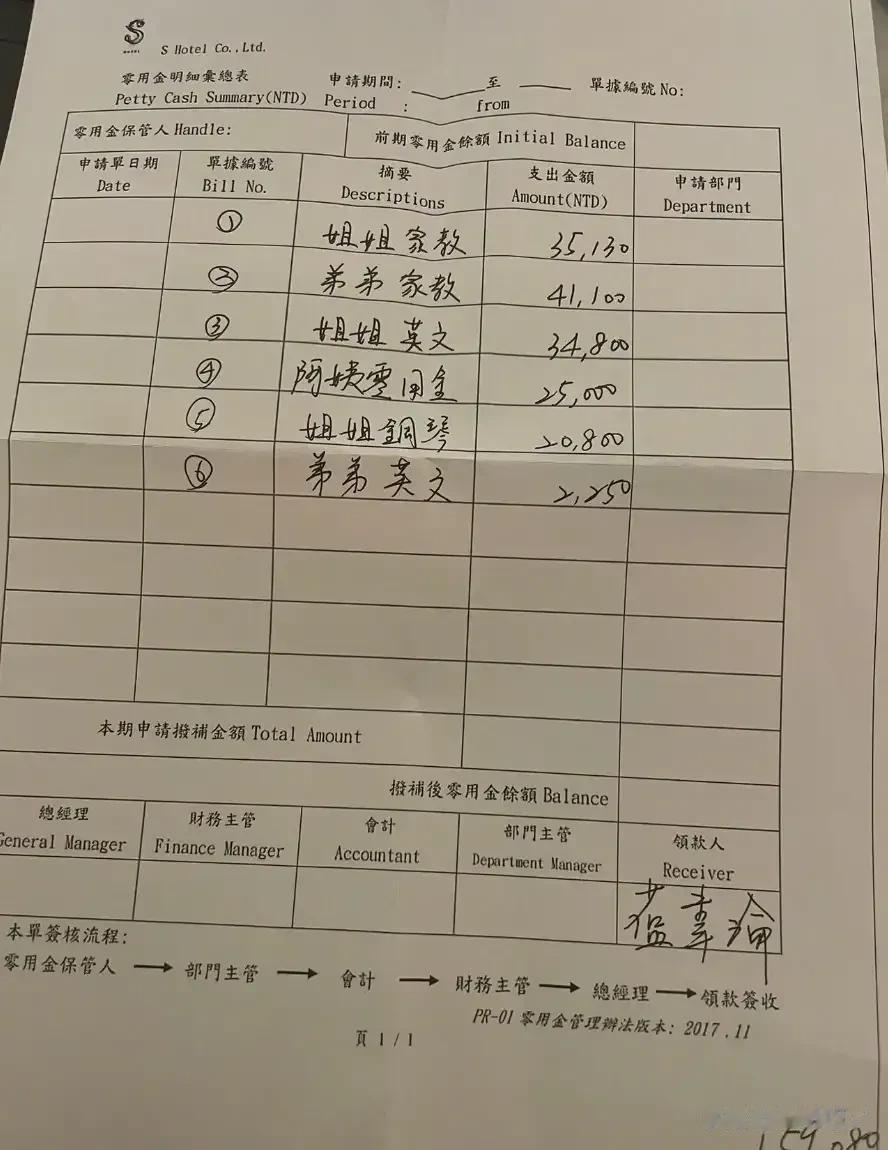 S
HOTEL
S Hotel Co.,Ltd.
零用金明細彙總表 申請期間: 至 單據編號 No:
Petty Cash Summary(NTD) Period : from
零用金保管人 Handle: 前期零用金餘額 Initial Balance
申請單日期 單據編號 摘要 支出金額 申請部門
Date Bill No. Descriptions Amount(NTD) Department
① 姐姐家教 35,130
② 弟弟家教 41,100
③ 姐姐英文 34,800
④ 阿姨零用金 25,000
⑤ 姐姐鋼琴 20,800
⑥ 弟弟英文 2,250
本期申請撥補金額 Total Amount
撥補後零用金餘額 Balance
總經理 財務主管 會計 部門主管 領款人
General Manager Finance Manager Accountant Department Manager Receiver
本單簽核流程:
零用金保管人 → 部門主管 → 會計 → 財務主管 → 總經理 → 領款簽收
PR-01 零用金管理辦法版本: 2017 .11
頁 1 / 1
159,080